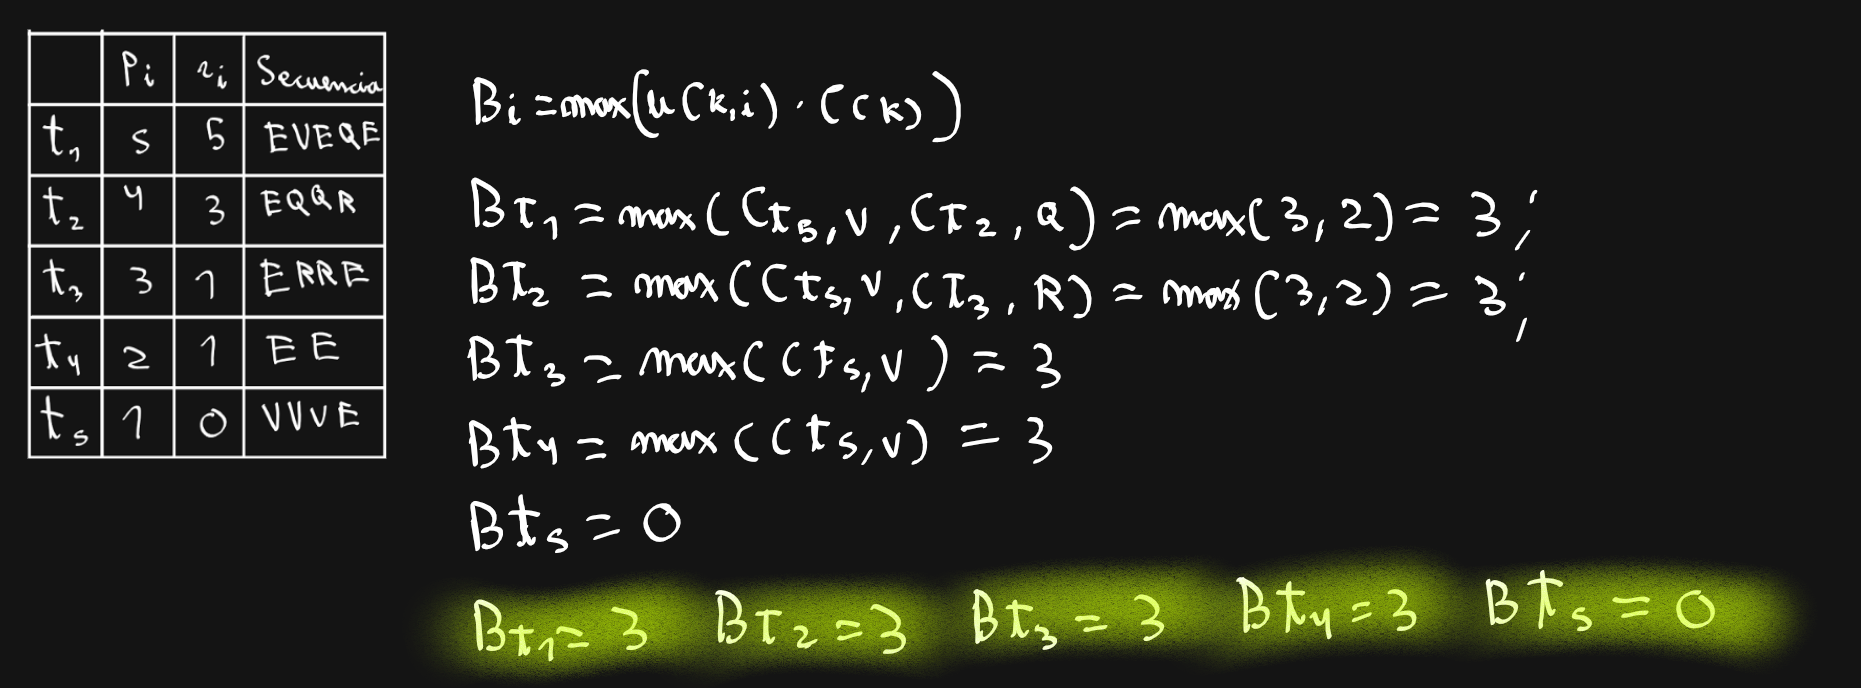 Pi ri Secuencia
t1 5 5 EVEQE
t2 4 3 EQQR
t3 3 1 ERRE
t4 2 1 EE
t5 1 0 VVVE
Bi = max(u(k,i) · C(k))
Bt1 = max(Ct5,V, Ct2,Q) = max(3,2) = 3;
Bt2 = max(Ct5,V, Ct3,R) = max(3,2) = 3;
Bt3 = max(Ct5,V) = 3
Bt4 = max(Ct5,V) = 3
Bt5 = 0
Bt1 = 3 Bt2 = 3 Bt3 = 3 Bt4 = 3 Bt5 = 0